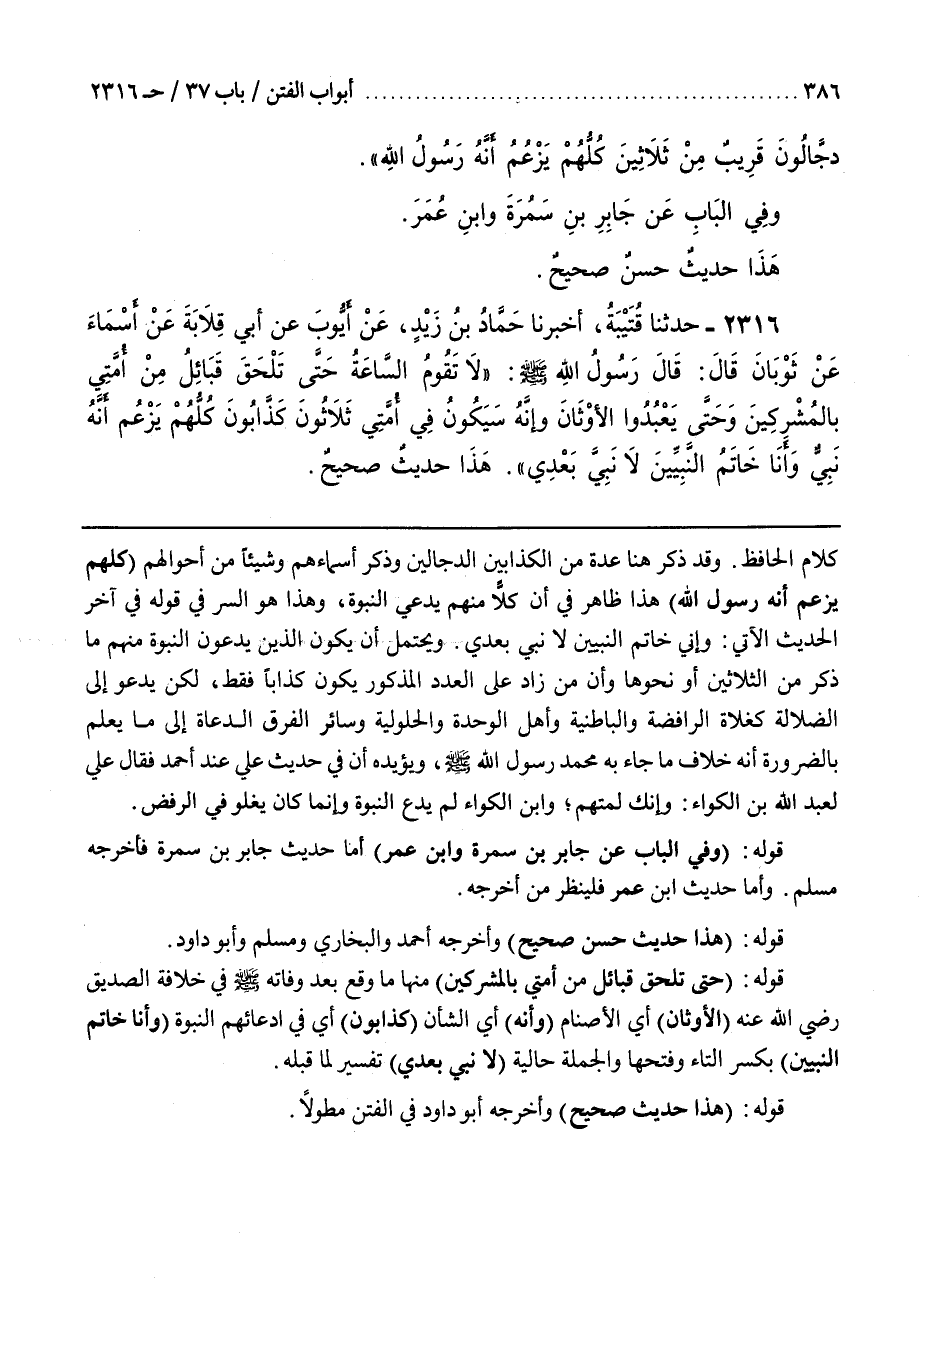 ٣٨٦ ................................................. أبواب الفتن / باب ٣٧ / حـ ٢٣١٦
دجَّالُونَ قَرِيبٌ مِنْ ثَلَاثِينَ كُلُّهُمْ يَزْعُمُ أَنَّهُ رَسُولُ اللهِ».
وفِي البَابِ عَن جَابِرِ بنِ سَمُرَةَ وابنِ عُمَرَ.
هَذَا حديثٌ حسنٌ صحيحٌ.
٢٣١٦ ـ حدثنا قُتَيْبَةُ، أخبرنا حَمَّادُ بنُ زَيْدٍ، عَنْ أَيُّوبَ عن أبي قِلَابَةَ عَنْ أَسْمَاءَ
عَنْ ثَوْبَانَ قَالَ: قَالَ رَسُولُ اللهِ ﷺ: «لَا تَقُومُ السَّاعَةُ حَتَّى تَلْحَقَ قَبَائِلُ مِنْ أُمَّتِي
بالمُشْرِكِينَ وَحَتَّى يَعْبُدُوا الأوْثَانَ وإنَّهُ سَيَكُونُ فِي أُمَّتِي ثَلَاثُونَ كَذَّابُونَ كُلُّهُمْ يَزْعُم أَنَّهُ
نَبِيٌّ وَأَنَا خَاتَمُ النَّبِيِّينَ لَا نَبِيَّ بَعْدِي». هَذَا حديثٌ صحيحٌ.
كلام الحافظ. وقد ذكر هنا عدة من الكذابين الدجالين وذكر أسماءهم وشيئاً من أحوالهم (كلهم
يزعم أنه رسول الله) هذا ظاهر في أن كلًّا منهم يدعي النبوة، وهذا هو السر في قوله في آخر
الحديث الآتي: وإني خاتم النبيين لا نبي بعدي. ويحتمل أن يكون الذين يدعون النبوة منهم ما
ذكر من الثلاثين أو نحوها وأن من زاد على العدد المذكور يكون كذاباً فقط، لكن يدعو إلى
الضلالة كغلاة الرافضة والباطنية وأهل الوحدة والحلولية وسائر الفرق الدعاة إلى ما يعلم
بالضرورة أنه خلاف ما جاء به محمد رسول الله ﷺ، ويؤيده أن في حديث علي عند أحمد فقال علي
لعبد الله بن الكواء: وإنك لمنهم؛ وابن الكواء لم يدع النبوة وإنما كان يغلو في الرفض.
قوله: (وفي الباب عن جابر بن سمرة وابن عمر) أما حديث جابر بن سمرة فأخرجه
مسلم. وأما حديث ابن عمر فلينظر من أخرجه.
قوله: (هذا حديث حسن صحيح) وأخرجه أحمد والبخاري ومسلم وأبو داود.
قوله: (حتى تلحق قبائل من أمتي بالمشركين) منها ما وقع بعد وفاته ﷺ في خلافة الصديق
رضي الله عنه (الأوثان) أي الأصنام (وأنه) أي الشأن (كذابون) أي في ادعائهم النبوة (وأنا خاتم
النبيين) بكسر التاء وفتحها والجملة حالية (لا نبي بعدي) تفسير لما قبله.
قوله: (هذا حديث صحيح) وأخرجه أبو داود في الفتن مطولًا.